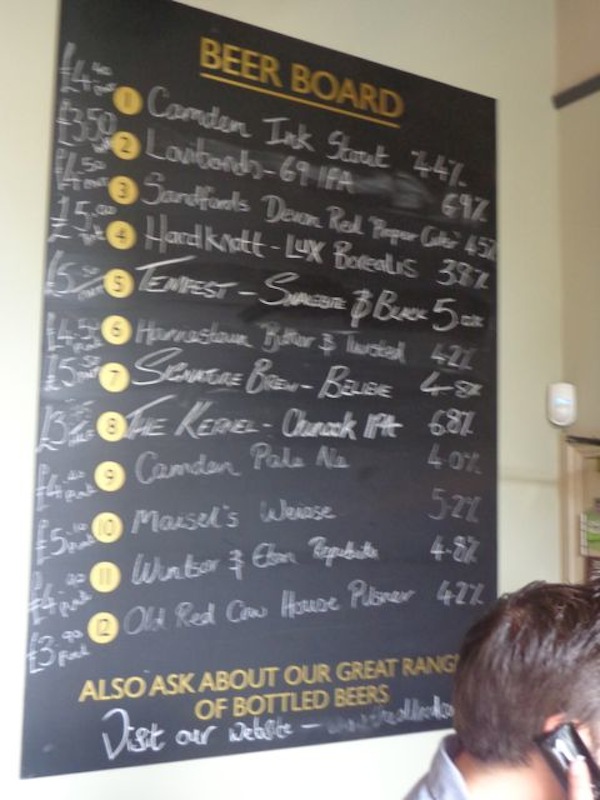 BEER BOARD
£4.40 pint 1 Camden Ink Stout 4.4%
£3.50 2 Lovibonds - 69 IPA 6.9%
£4.50 3 Sandfords Devon Red "Proper Cider" 4.5%
£5.00 4 Hardknott - LUX Borealis 3.8%
£5.50 5 TEMPEST - & BLACK 5.0%
£4.50 pint 6 Harviestoun Bitter & Twisted 4.2%
£5. 7 SIGNATURE BREW - BELIEVE 4.8%
£3. 8 THE KERNEL - Chinook IPA 6.8%
£4. pint 9 Camden Pale Ale 4.0%
£5. pint 10 Maisel's Weisse 5.2%
£4. pint 11 Windsor & Eton Republika 4.8%
£3.90 pint 12 Old Red Cow House Pilsner 4.2%
ALSO ASK ABOUT OUR GREAT RANG
OF BOTTLED BEERS
Visit our website -